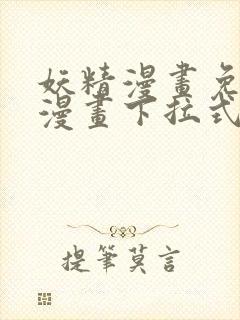 妖精漫畫免
漫畫下拉式
提筆莫言